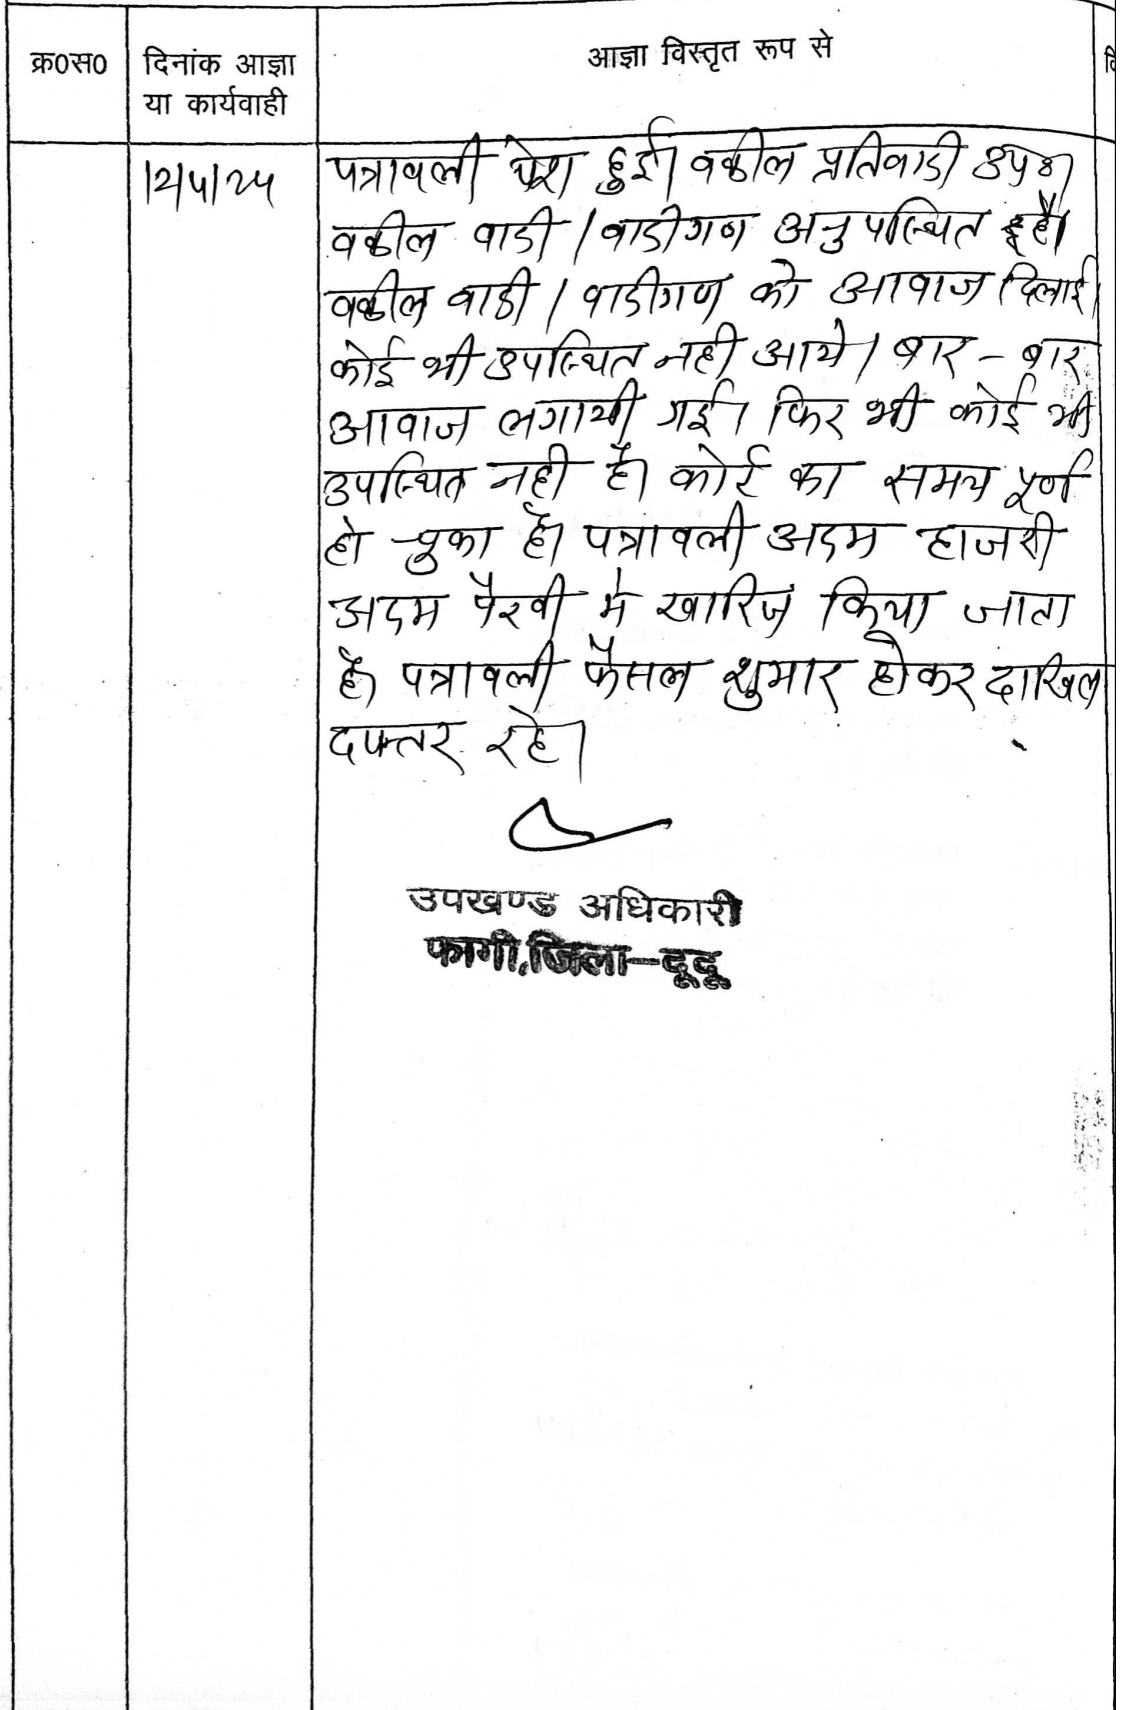 क्र०स०
दिनांक आज्ञा
या कार्यवाही
आज्ञा विस्तृत रूप से
पत्रावली पेश हुई। वकील प्रतिवादी उप०।
वकील वादी / वादीगण अनुपस्थित है।
वकील वादी / वादीगण को आवाज दिलाई।
कोई भी उपस्थित नही आये। बार - बार
आवाज लगायी गई। फिर भी कोई भी
उपस्थित नही है। कोर्ट का समय पूर्ण
हो चुका है। पत्रावली अदम हाजरी
अदम पैरवी मे खारिज किया जाता
है। पत्रावली फैसल शुमार होकर दाखिल
दफ्तर रहे।
उपखण्ड अधिकारी
फागी,जिला-दूदू